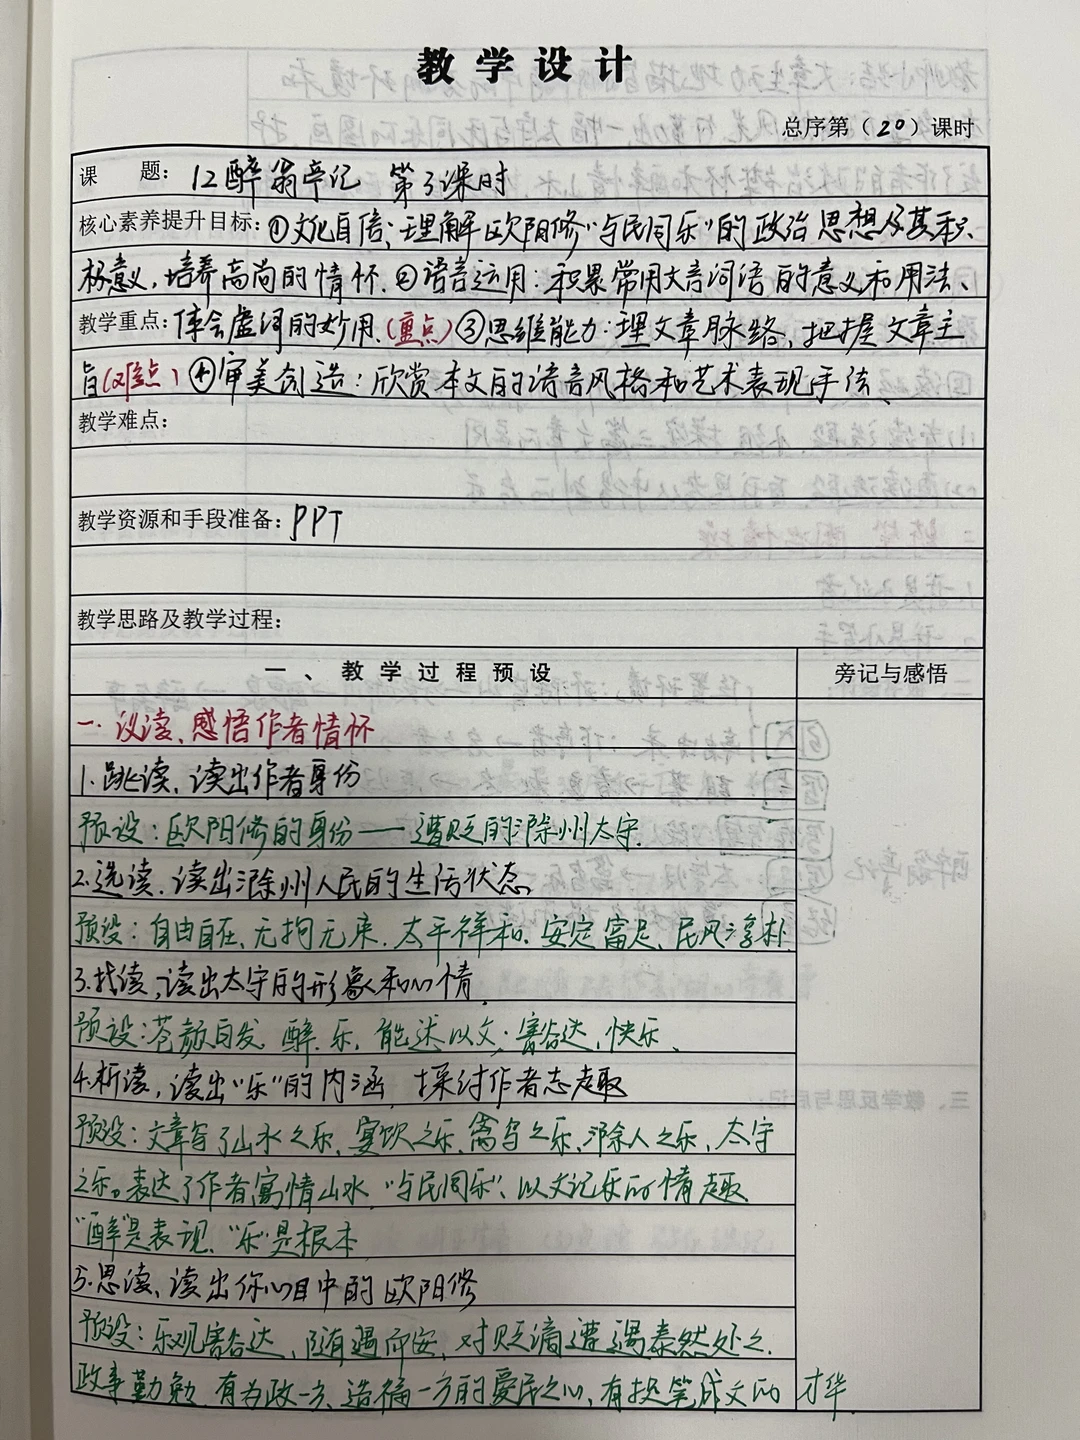 教学设计
总序第（20）课时
课 题：12醉翁亭记 第3课时
核心素养提升目标：①文化自信：理解欧阳修“与民同乐”的政治思想及其积
极意义，培养高尚的情怀.②语言运用：积累常用文言词语的意义和用法、
教学重点：体会虚词的妙用.(重点)③思维能力：理文章脉络，把握文章主
旨(难点)④审美创造：欣赏本文的语言风格和艺术表现手法、
教学难点：
教学资源和手段准备：PPT
教学思路及教学过程：
一、教学过程预设 旁记与感悟
一.议读、感悟作者情怀
1.跳读、读出作者身份
预设：欧阳修的身份——遭贬的滁州太守.
2.选读.读出滁州人民的生活状态
预设：自由自在、无拘无束.太平祥和.安定富足、民风淳朴
3.找读，读出太守的形象和心情.
预设：苍颜白发.醉.乐.能述以文；豁达，快乐、
4.析读，读出“乐”的内涵 探讨作者志趣
预设：文章写了山水之乐、宴饮之乐、禽鸟之乐、滁人之乐、太守
之乐。表达了作者寓情山水.“与民同乐”、以文记乐的情趣
“醉”是表现、“乐”是根本
5.思读、读出你心目中的欧阳修
预设：乐观豁达、随遇而安，对贬谪遭遇泰然处之.
政事勤勉.有为政一方、造福一方的爱民之心、有提笔成文的才华.